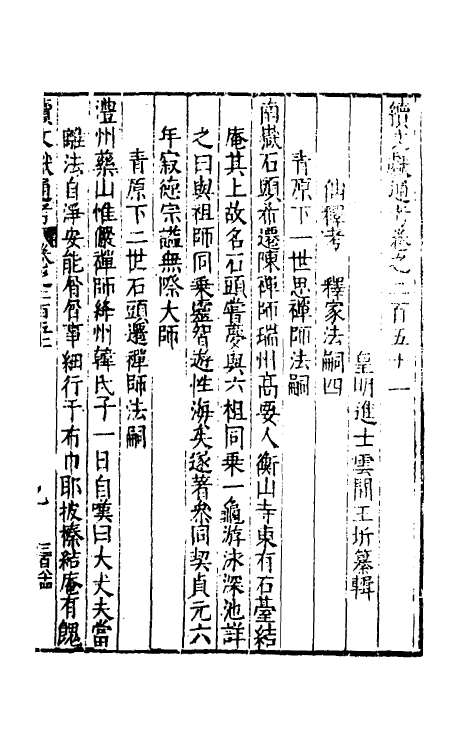 續文獻通考卷之二百五十一
皇明進士雲間王圻纂輯
仙釋考　釋家法嗣四
青原下一世思禪師法嗣
南嶽石頭希遷陳禪師瑞州高要人衡山寺東有石臺結
庵其上故名石頭嘗夢與六祖同乗一龜游泳深池詳
之曰與祖師同乗靈智遊性海矣遂著參同契貞元六
年寂德宗謚無際大師
青原下二世石頭遷禪師法嗣
澧州藥山惟儼禪師絳州韓氏子一日自嘆曰大丈夫當
離法自淨安能屑屑事細行于布巾耶披榛結庵有魄
續文獻通考 卷之二百五十一